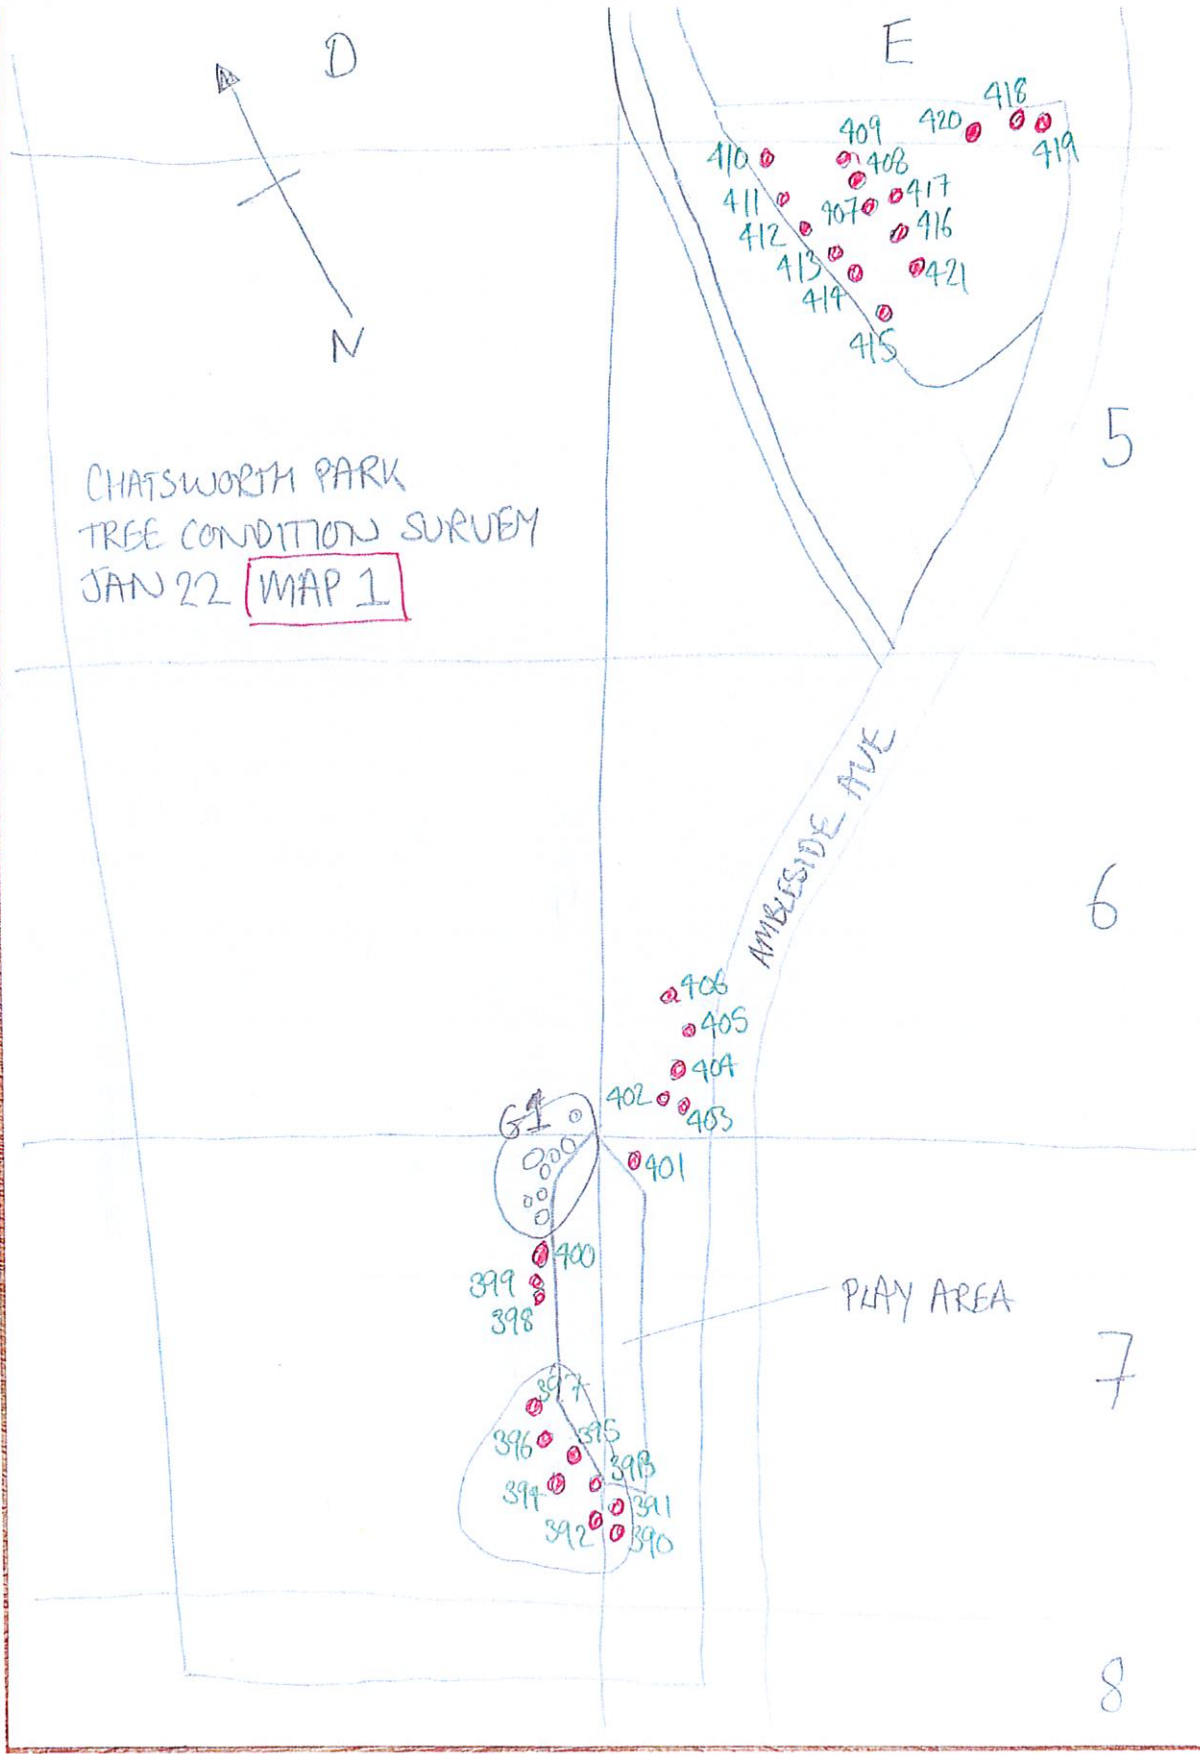 D
E
418
420
409
419
410
408
417
411
407
416
412
413
421
414
415
N
5
CHATSWORTH PARK
TREE CONDITION SURVEY
JAN 22 MAP 1
AMBLESIDE AVE
6
406
405
404
402
403
G1
401
400
399
398
PLAY AREA
7
397
396
395
393
394
391
392
390
8